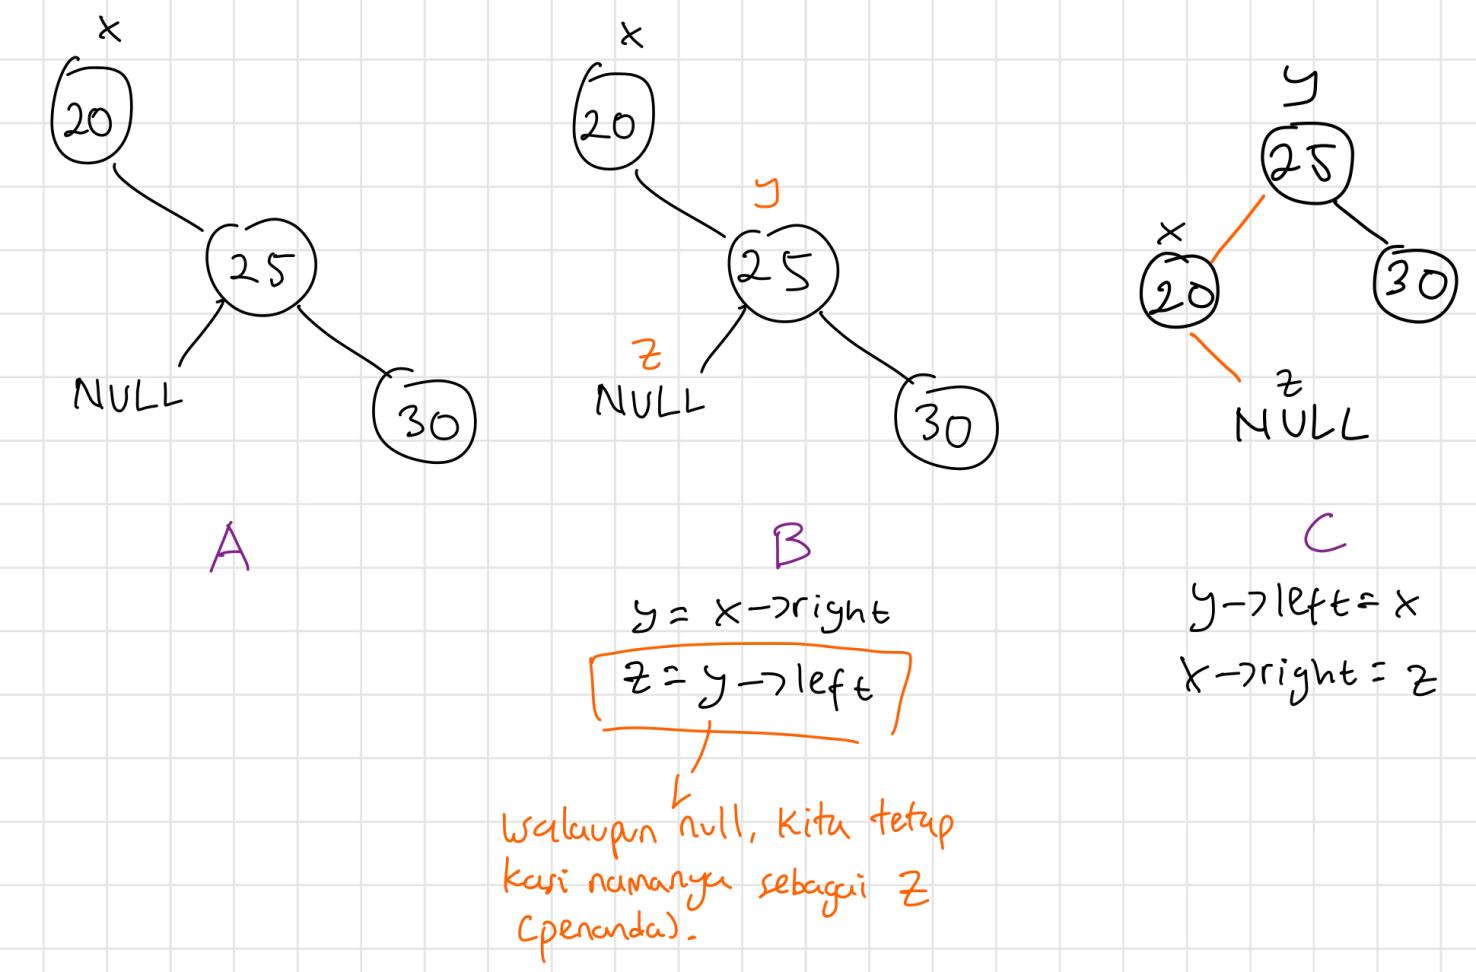 x
20
25
NULL
30
A
x
20
y
25
z
NULL
30
B
y = x->right
z = y->left
walaupun null, kita tetap
kasi namanya sebagai z
(penanda).
y
25
x
20
30
z
NULL
C
y->left = x
x->right = z